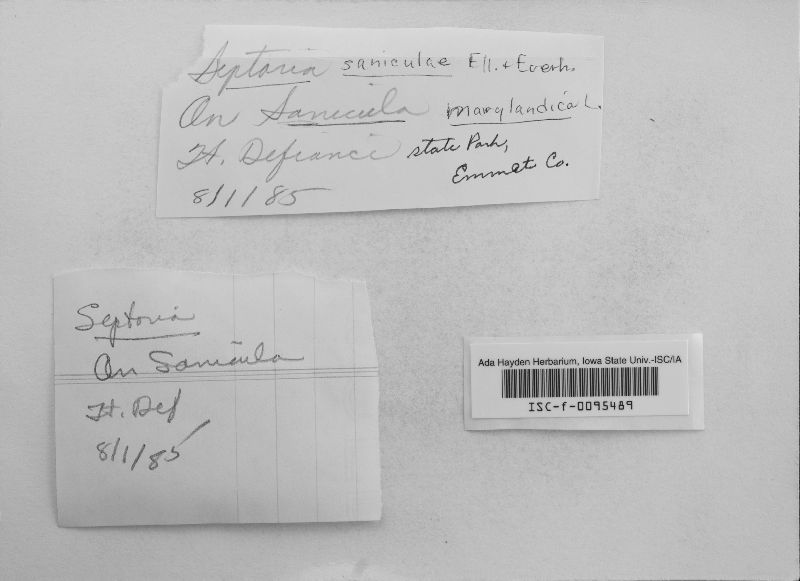 Septoria saniculae Ell. + Everh.
On Sanicula marylandica L.
Ft. Defiance state Park,
Emmet Co.
8/1/85
Septoria
On Sanicula
Ft. Def
8/1/85
Ada Hayden Herbarium, Iowa State Univ.-ISC/IA
ISC-f-0095489